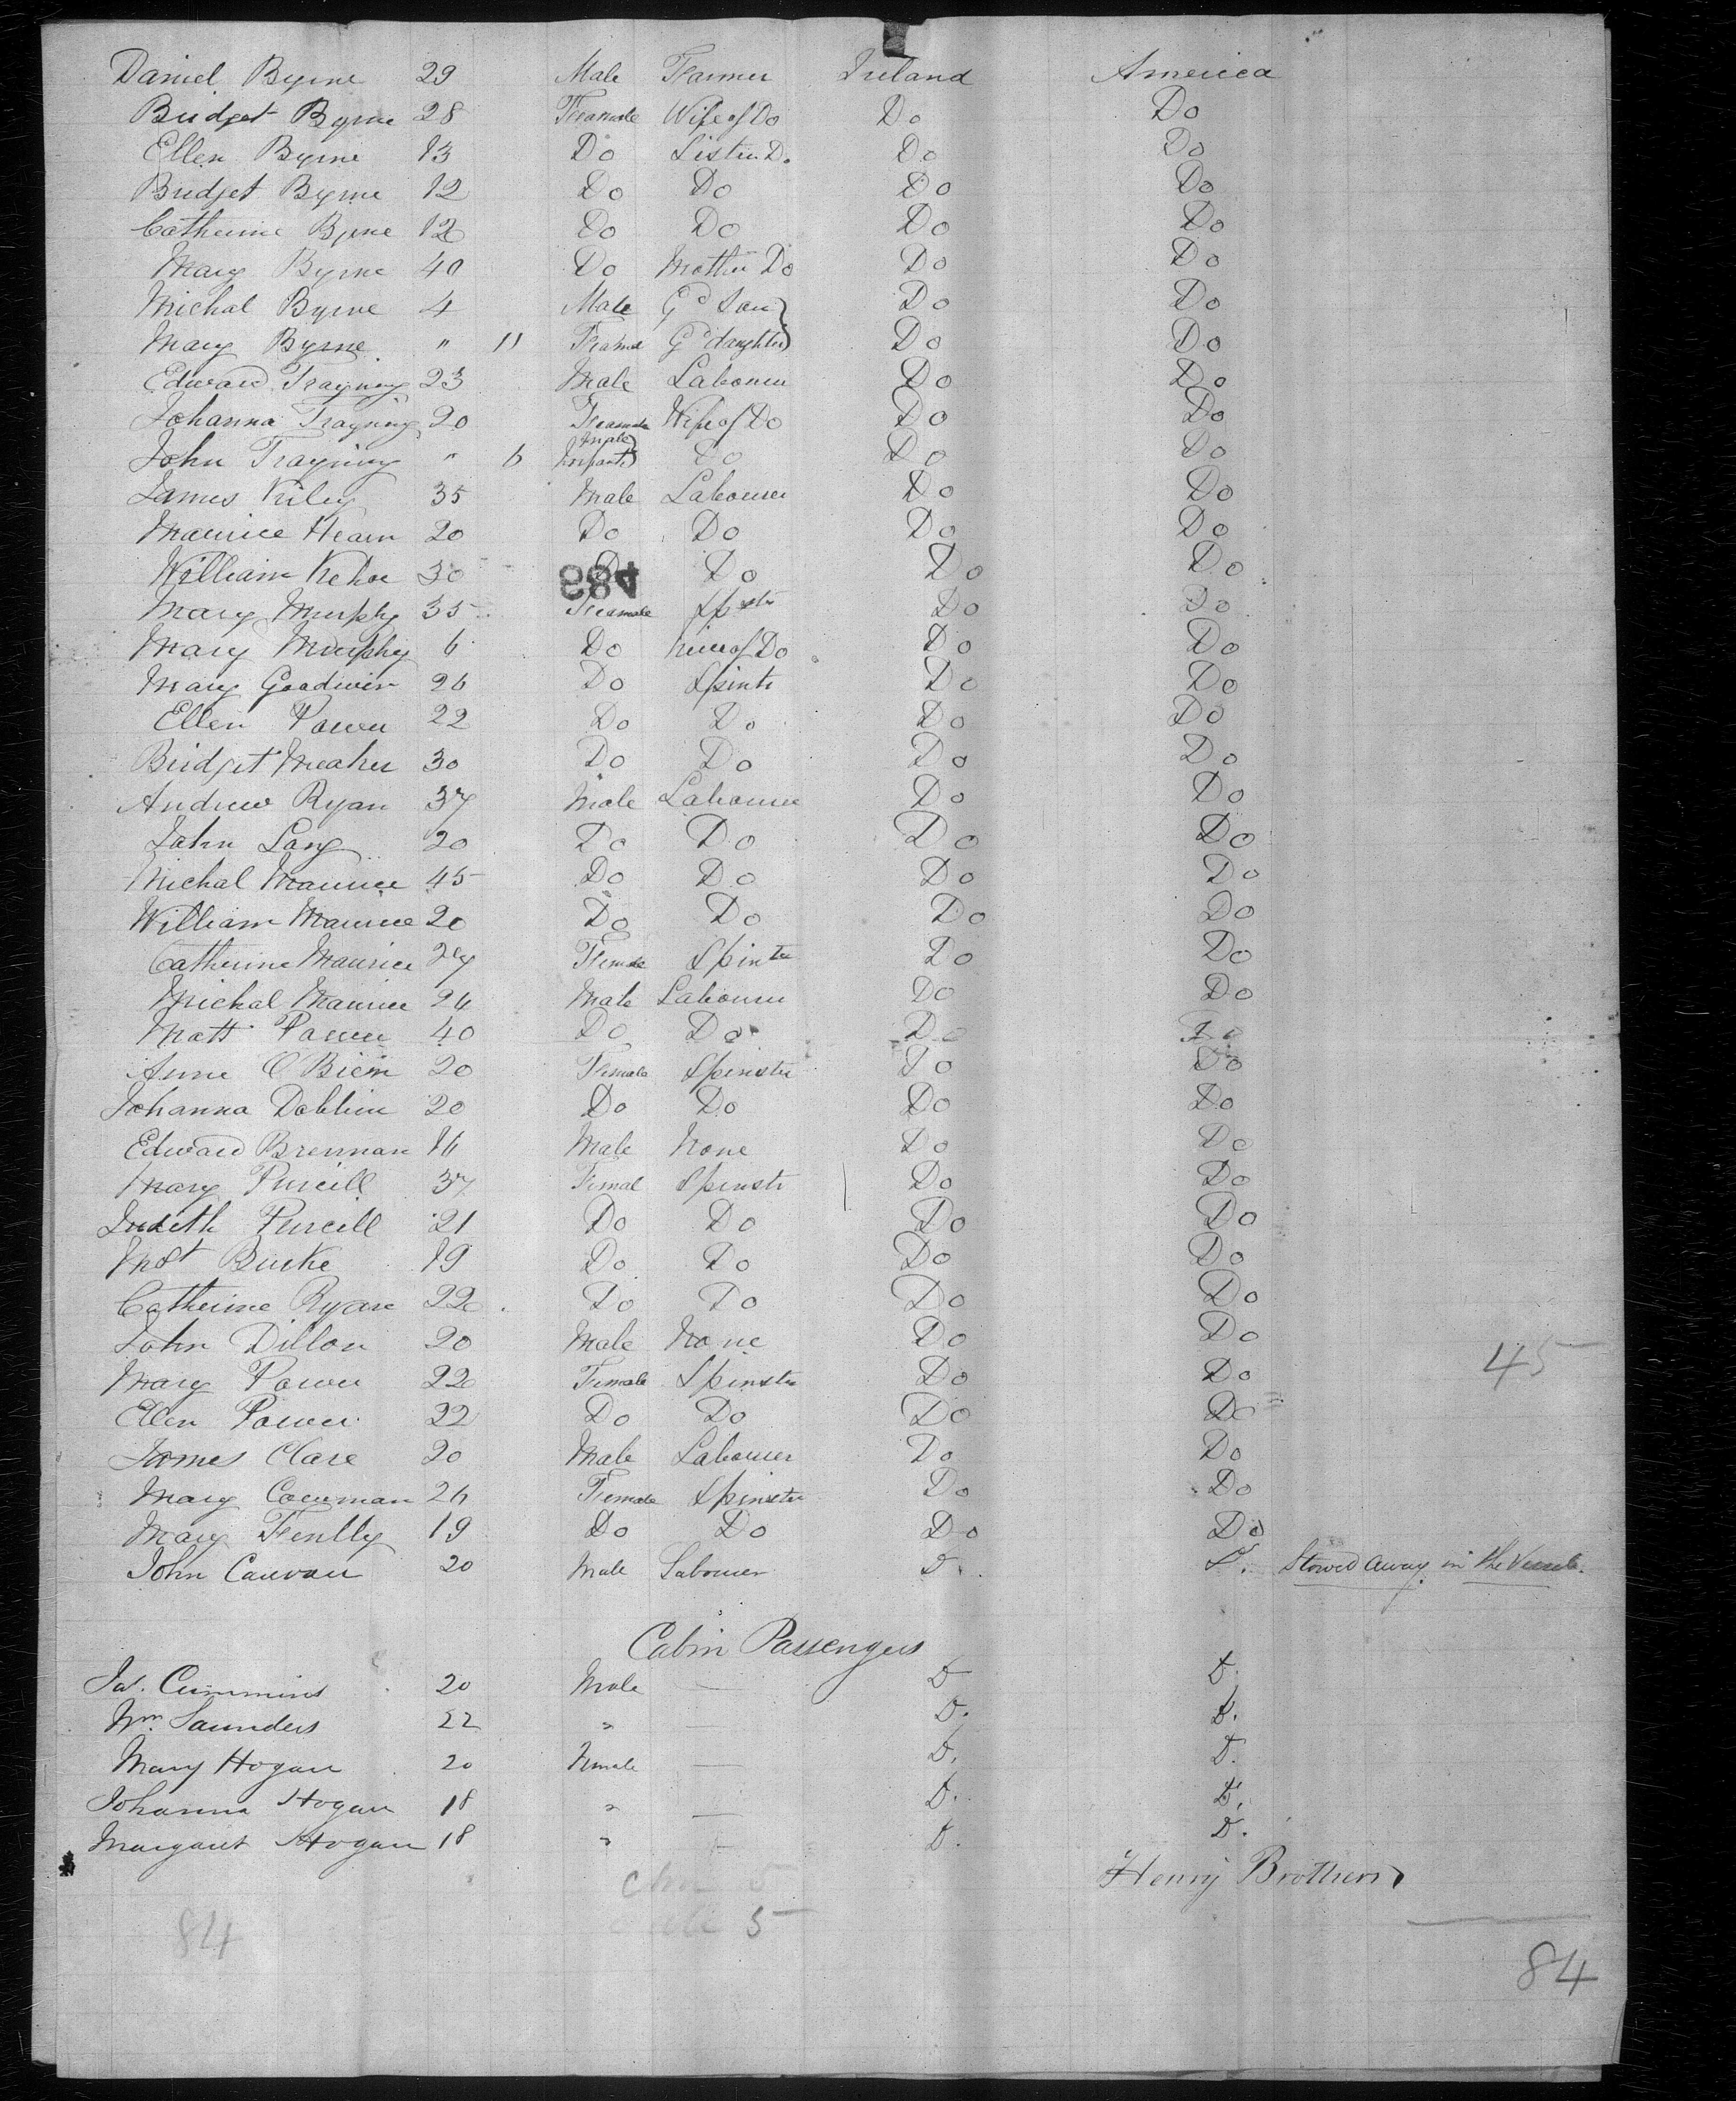 Daniel Byrne 29 Male Farmer Ireland America
Bridget Byrne 28 Feamale Wife of Do Do Do
Ellen Byrne 13 Do Sister Do Do Do
Bridget Byrne 12 Do Do Do Do
Catherine Byrne 12 Do Do Do Do
Mary Byrne 40 Do Mother Do Do Do
Michal Byrne 4 Male Gd Son } Do Do
Mary Byrne " 11 Feamal Gd daughter } Do Do
Edward Trayning 23 Male Labourer Do Do
Johanna Trayning 20 Feamale Wife of Do Do Do
John Trayning " 6 Male Infant } Do Do Do
James Kiley 35 Male Labourer Do Do
Maurice Hearn 20 Do Do Do Do
William Kehoe 30 Do Do Do Do
488
Mary Murphy 35 Feamale Spstr Do Do
Mary Murphy 6 Do Niece of Do Do Do
Mary Goodwin 26 Do Spintr Do Do
Ellen Power 22 Do Do Do Do
Bridget Meaher 30 Do Do Do Do
Andrew Ryan 37 Male Labourer Do Do
John Long 20 Do Do Do Do
Michal Maurice 45 Do Do Do Do
William Maurice 20 Do Do Do Do
Catherine Maurice 27 Female Spinter Do Do
Michal Maurice 24 Male Labourer Do Do
Matt Power 40 Do Do Do Do
Anne O Brien 20 Female Spinster Do Do
Johanna Dobbin 20 Do Do Do Do
Edward Brennan 16 Male None Do Do
Mary Purcill 37 Femal Spinstr Do Do
Judith Purcill 21 Do Do Do Do
Mgt Burke 19 Do Do Do Do
Catherine Ryan 22 Do Do Do Do
John Dillon 20 Male None Do Do
45
Mary Power 22 Female Spinster Do Do
Ellen Power 22 Do Do Do Do
James Clare 20 Male Labourer Do Do
Mary Cowman 26 Female Spinster Do Do
Mary Fently 19 Do Do Do Do
John Canvan 20 Male Labourer D. D. Stowed away in the Vessel.
Cabin Passengers
Jas. Cummins 20 Male — D D.
Wm. Saunders 22 " — D. D.
Mary Hogan 20 Female — D. D.
Johanna Hogan 18 " — D. D.
Margaret Hogan 18 " — D. D.
Henry Brothers
5
5
84
84